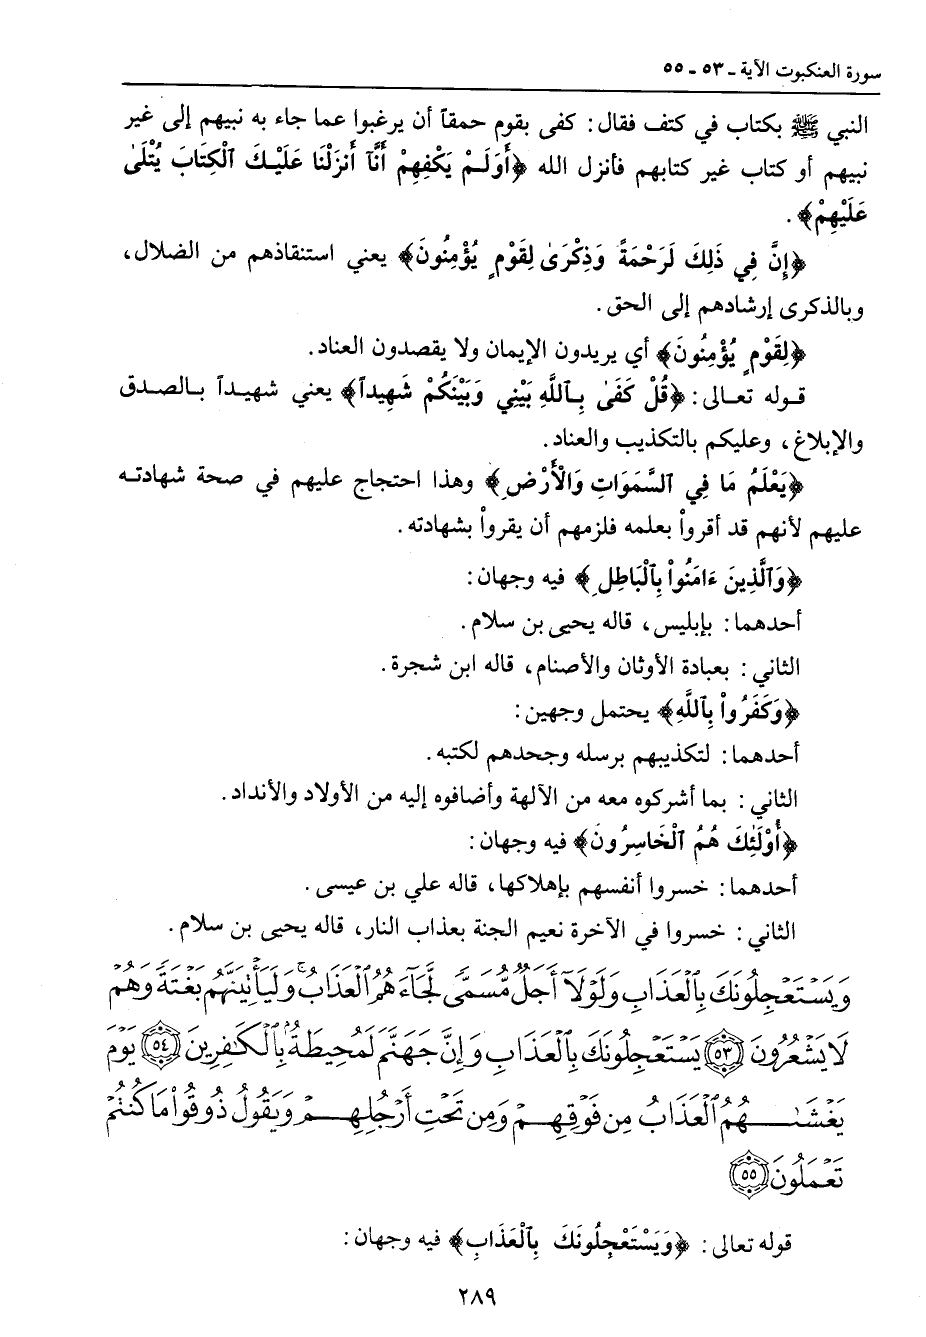 سورة العنكبوت الآية ـ ٥٣ ـ ٥٥
النبي ﷺ بكتاب في كتف فقال: كفى بقوم حمقاً أن يرغبوا عما جاء به نبيهم إلى غير
نبيهم أو كتاب غير كتابهم فأنزل الله ﴿أَوَلَـمْ يَكْفِهِمْ أَنَّآ أَنزَلْنَا عَلَيْـكَ الْكِتَابَ يُتْلَىٰ
عَلَيْهِمْ﴾.
﴿إِنَّ فِي ذَلِكَ لَرَحْمَةً وَذِكْرَىٰ لِقَوْمٍ يُؤْمِنُونَ﴾ يعني استنقاذهم من الضلال،
وبالذكرى إرشادهم إلى الحق.
﴿لِقَوْمٍ يُؤْمِنُونَ﴾ أي يريدون الإيمان ولا يقصدون العناد.
قـوله تعـالى: ﴿قُلْ كَفَىٰ بِـٱللَّهِ بَيْنِي وَبَيْنَكُمْ شَهِيداً﴾ يعني شهيـداً بـالصدق
والإبلاغ، وعليكم بالتكذيب والعناد.
﴿يَعْلَمُ مَا فِي ٱلسَّمَوَاتِ وَالْأَرْضِ﴾ وهذا احتجاج عليهم في صحة شهادتـه
عليهم لأنهم قد أقرواْ بعلمه فلزمهم أن يقرواْ بشهادته.
﴿وَٱلَّذِينَ ءَامَنُواْ بِٱلْبَاطِلِ﴾ فيه وجهان:
أحدهما: بإبليس، قاله يحيى بن سلام.
الثاني: بعبادة الأوثان والأصنام، قاله ابن شجرة.
﴿وَكَفَرُواْ بِٱللَّهِ﴾ يحتمل وجهين:
أحدهما: لتكذيبهم برسله وجحدهم لكتبه.
الثاني: بما أشركوه معه من الآلهة وأضافوه إليه من الأولاد والأنداد.
﴿أُوْلَئِكَ هُمُ ٱلْخَاسِرُونَ﴾ فيه وجهان:
أحدهما: خسروا أنفسهم بإهلاكها، قاله علي بن عيسى.
الثاني: خسروا في الآخرة نعيم الجنة بعذاب النار، قاله يحيى بن سلام.
وَيَسْتَعْجِلُونَكَ بِٱلْعَذَابِ وَلَوْلَآ أَجَلٌ مُّسَمًّى لَّجَآءَهُمُ ٱلْعَذَابُ ۚ وَلَيَأْتِيَنَّهُم بَغْتَةً وَهُمْ
لَا يَشْعُرُونَ ﴿٥٣﴾ يَسْتَعْجِلُونَكَ بِٱلْعَذَابِ وَإِنَّ جَهَنَّمَ لَمُحِيطَةٌۢ بِٱلْكَـٰفِرِينَ ﴿٥٤﴾ يَوْمَ
يَغْشَـٰهُمُ ٱلْعَذَابُ مِن فَوْقِهِمْ وَمِن تَحْتِ أَرْجُلِهِمْ وَيَقُولُ ذُوقُواْ مَا كُنتُمْ
تَعْمَلُونَ ﴿٥٥﴾
قوله تعالى: ﴿وَيَسْتَعْجِلُونَكَ بِٱلْعَذَابِ﴾ فيه وجهان:
٢٨٩